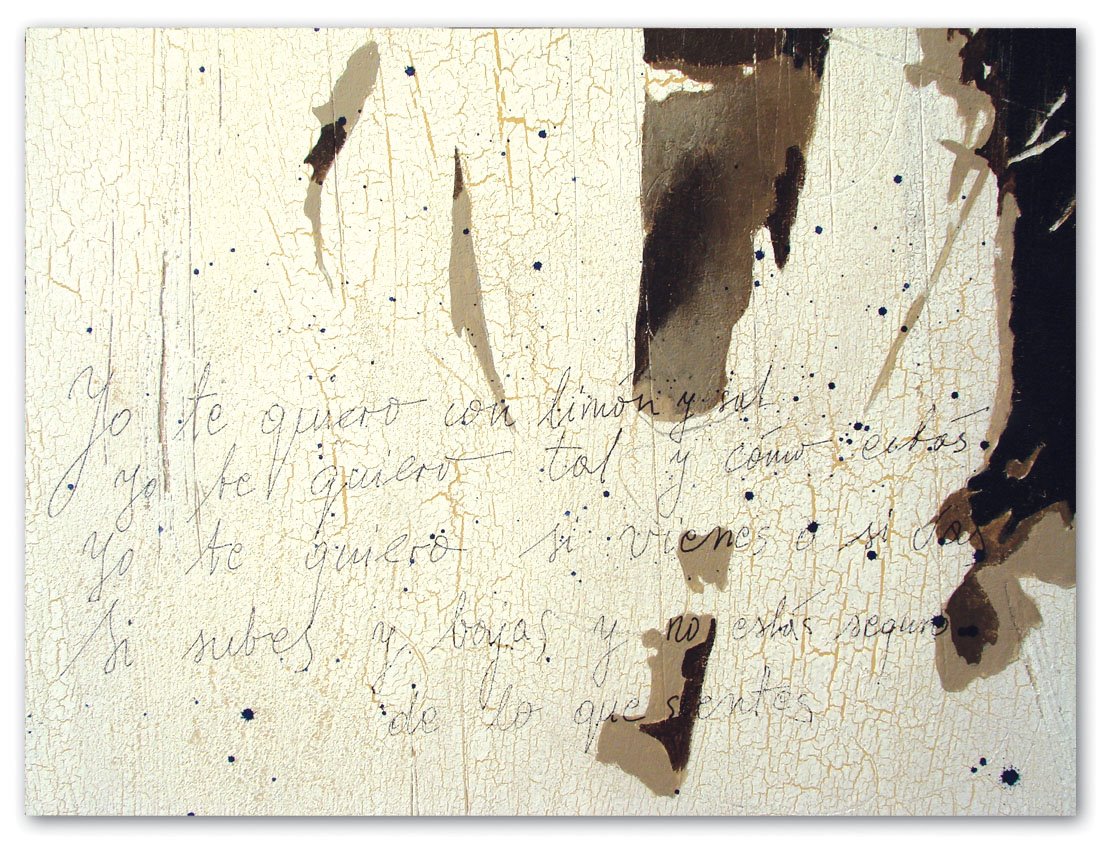 Yo te quiero con limón y sal
yo te quiero tal y cómo estás
Yo te quiero si vienes o si vas
si subes y bajas y no estás seguro
de lo que sientes